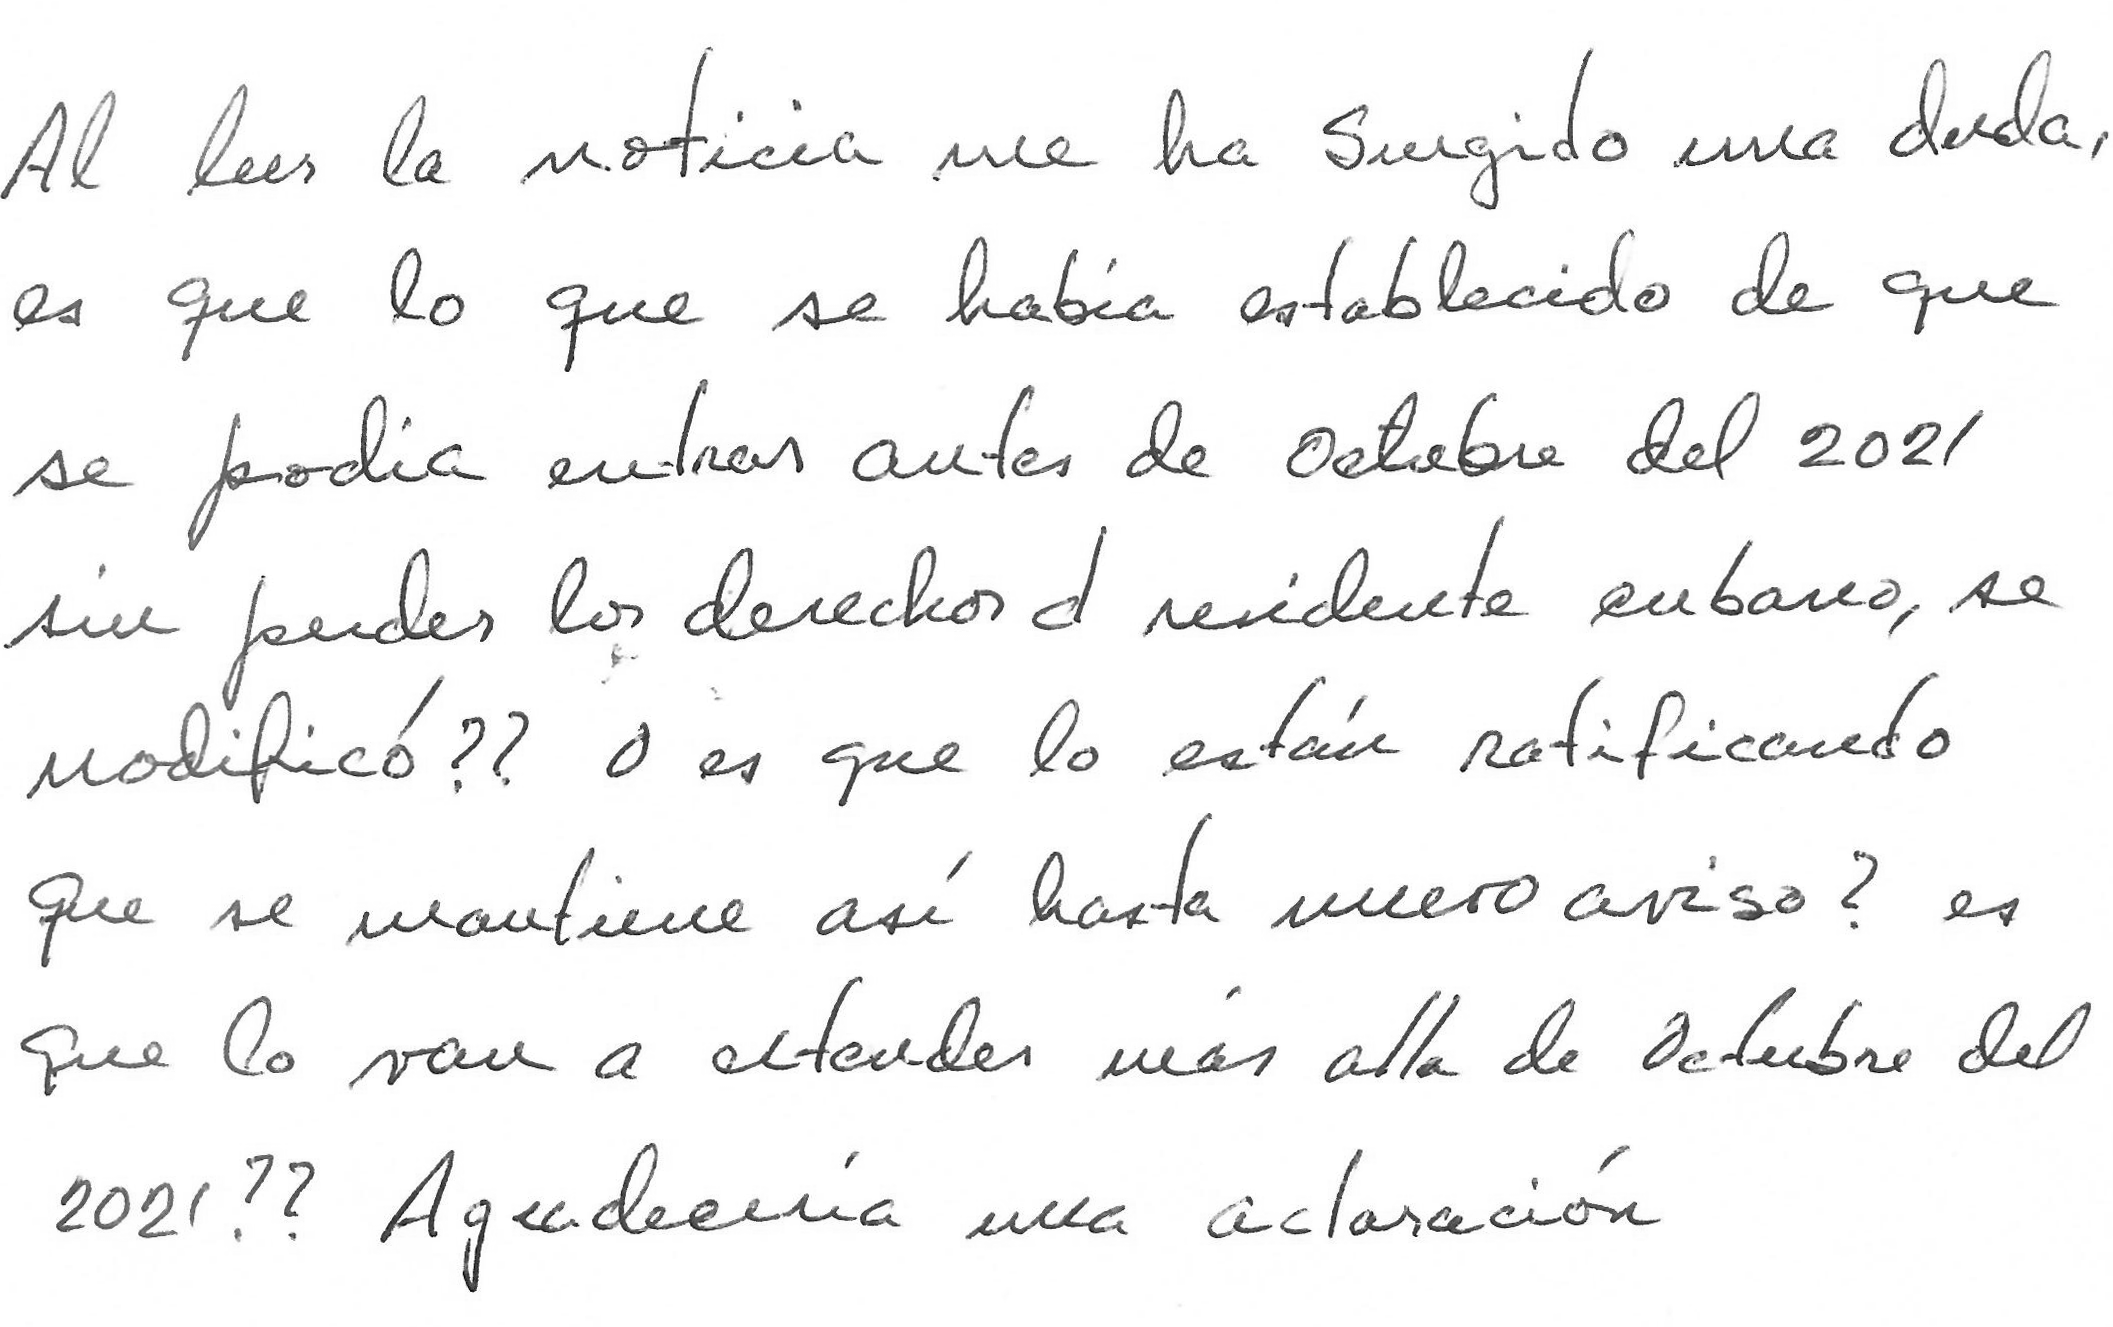 Al leer la noticia me ha surgido una duda,
es que lo que se había establecido de que
se podía entrar antes de Octubre del 2021
sin perder los derechos d residente cubano, se
modificó?? O es que lo están ratificando
que se mantiene así hasta nuevo aviso? es
que lo van a extender más alla de Octubre del
2021?? Agradecería una aclaración